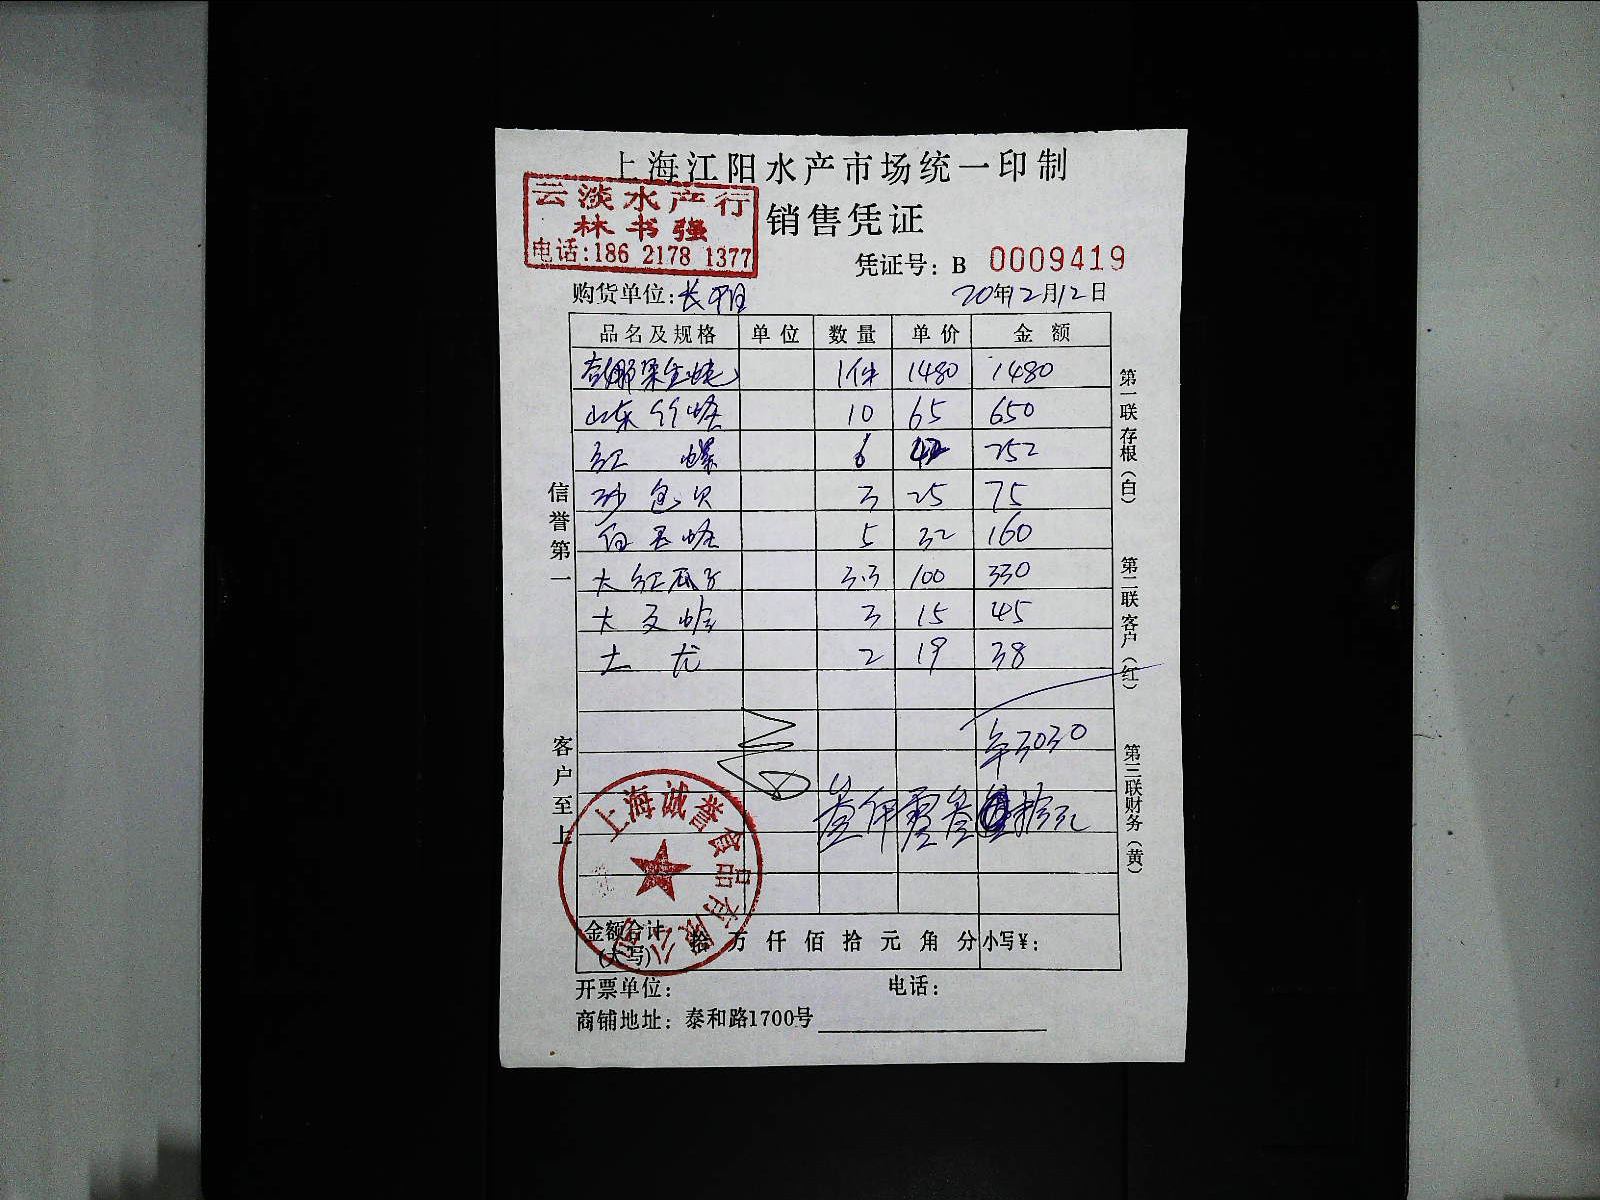 上海江阳水产市场统一印制
云淡水产行
林书强
电话:186 2178 1377
销售凭证
凭证号: B 0009419
购货单位:长阳
20年12月12日
品名及规格 单位 数量 单价 金额
1件 1480 1480
山东竹蛏 10 65 650
红螺 6 42 252
沙包贝 3 25 75
白玉蛏 5 32 160
大红瓜子 3.3 100 330
大文蛤 3 15 45
土龙 2 19 38
3030
叁仟零叁拾元
信誉第一
客户至上
第一联存根(白)
第二联客户(红)
第三联财务(黄)
上海诚誉食品有限公司
金额合计(大写) 拾万仟佰拾元角分 小写¥:
开票单位: 电话:
商铺地址: 泰和路1700号